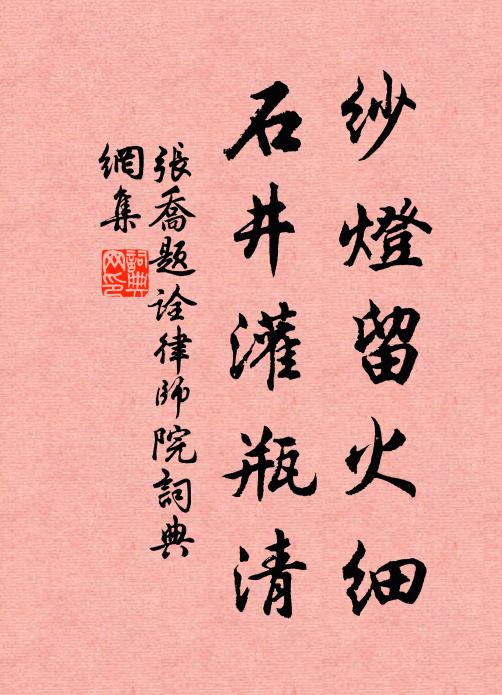 紗燈留火細
石井灌瓶清
張喬題詮律師院詞典
網集
詞典
网印